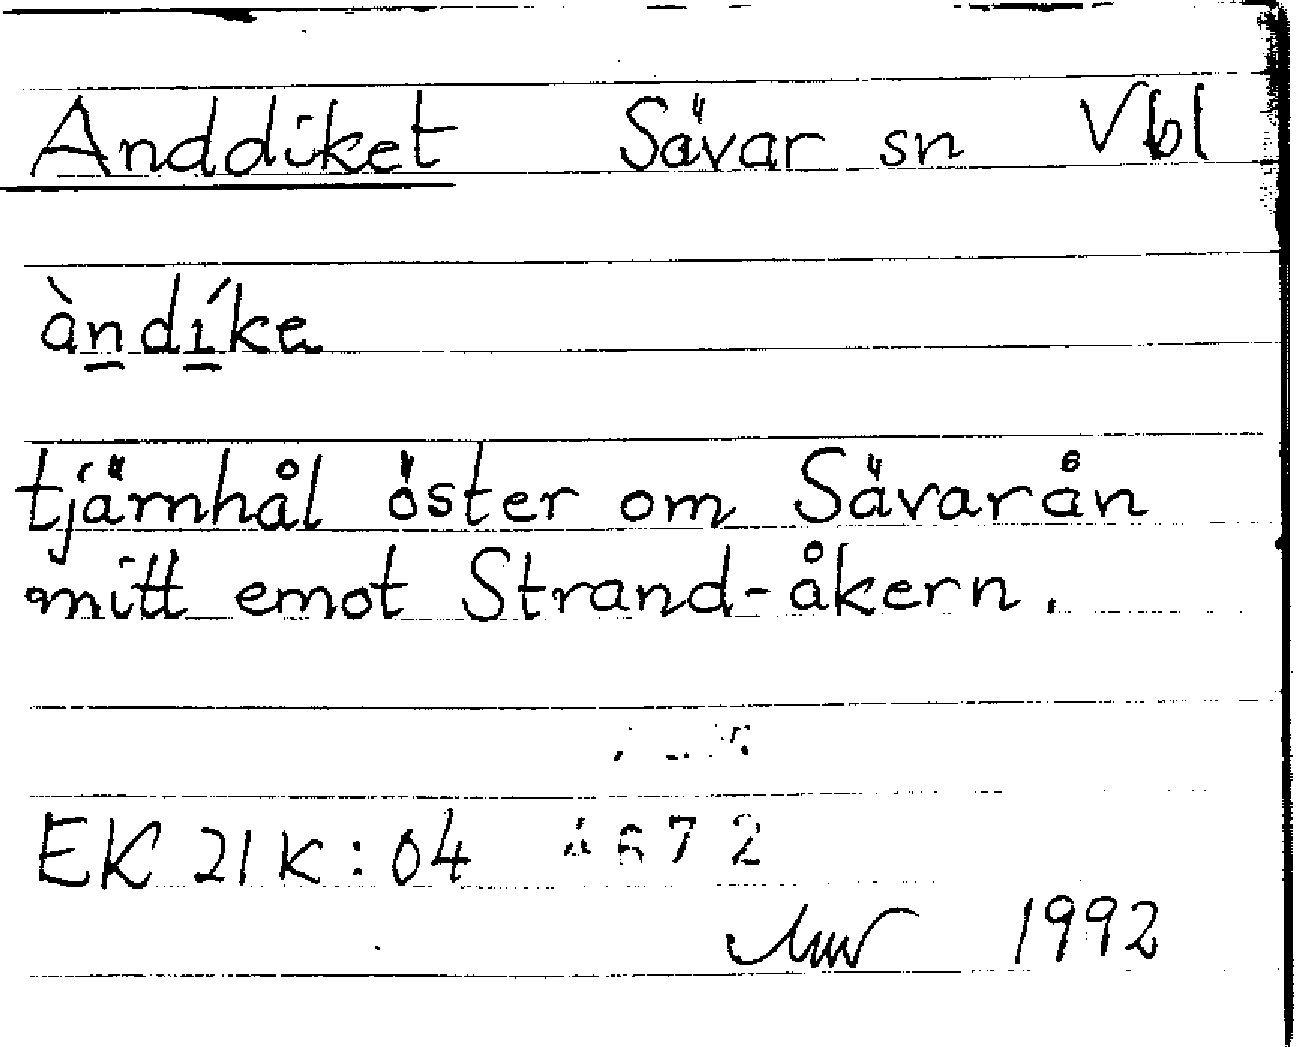 Anddiket Sävar sn Vbl
àndíka
tjärnhål öster om Sävarån
mitt emot Strand-åkern.
EK 21 K: 04 672
1992